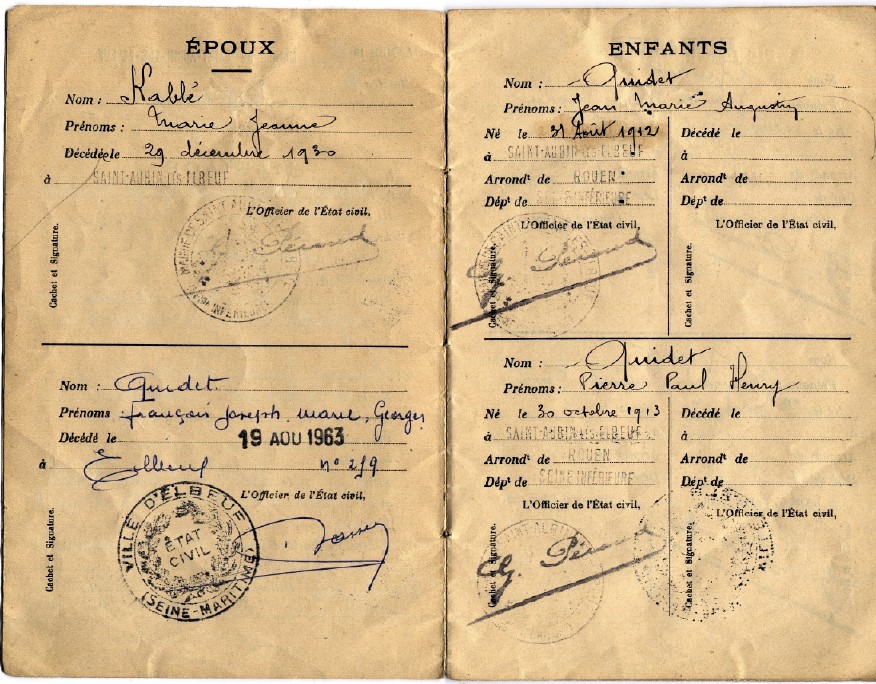 ÉPOUX
Nom : Kabbé
Prénoms : Marie Jeanne
Décédée le 29 décembre 1930
à SAINT-AUBIN-LÈS-ELBEUF
L'Officier de l'État civil,
G. Péraud
Cachet et Signature.
Nom : Quidet
Prénoms : François Joseph Marie, Georges
Décédé le 19 AOU 1963
à Elbeuf n° 279
L'Officier de l'État civil,
Cachet et Signature.
VILLE D'ELBEUF
ÉTAT
CIVIL
(SEINE-MARITIME)
ENFANTS
Nom : Quidet
Prénoms : Jean Marie Augustin
Né le 31 Août 1912
à SAINT-AUBIN-LÈS-ELBEUF
Arrondt de ROUEN
Dépt de SEINE-INFÉRIEURE
L'Officier de l'État civil,
G. Péraud
Cachet et Signature.
Décédé le
à
Arrondt de
Dépt de
L'Officier de l'État civil,
Cachet et Signature.
Nom : Quidet
Prénoms : Pierre Paul Henry
Né le 30 octobre 1913
à SAINT-AUBIN-LÈS-ELBEUF
Arrondt de ROUEN
Dépt de SEINE INFÉRIEURE
L'Officier de l'État civil,
G. Péraud
Cachet et Signature.
Décédé le
à
Arrondt de
Dépt de
L'Officier de l'État civil,
Cachet et Signature.